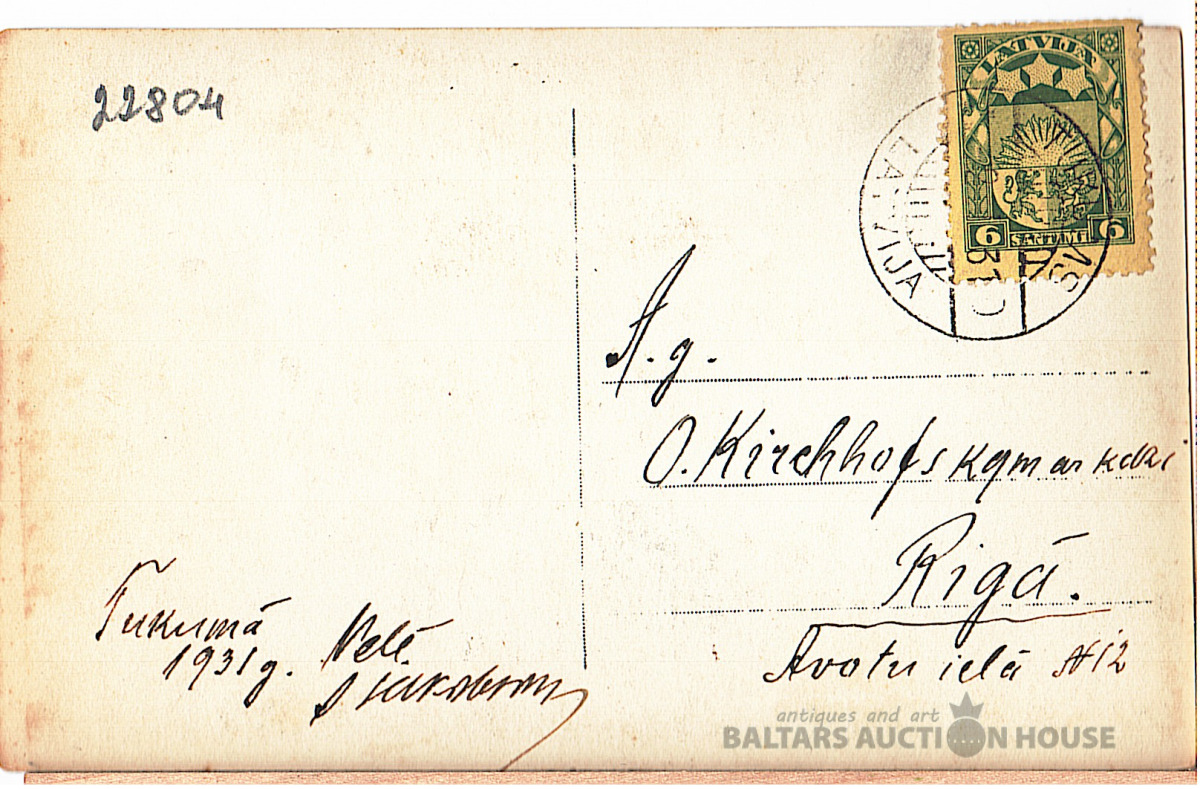 22804
LATVIJA
6 SANTIMI 6
LATVIJA
A. g.
O. Kirchhofs kgm
Rīgā.
Avotu ielā №12
Tukumā
1931 g. Vēlē
antiques and art
BALTARS AUCTION HOUSE